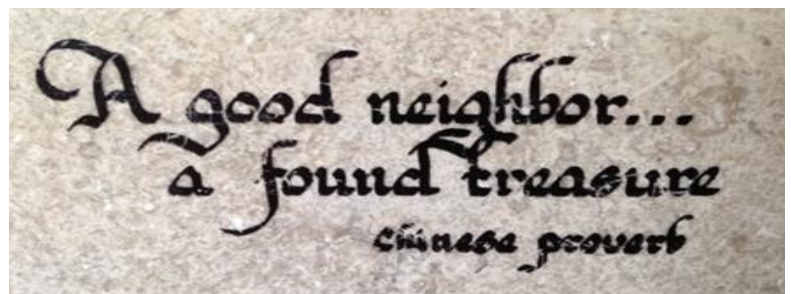 A good neighbor...
a found treasure
Chinese proverb